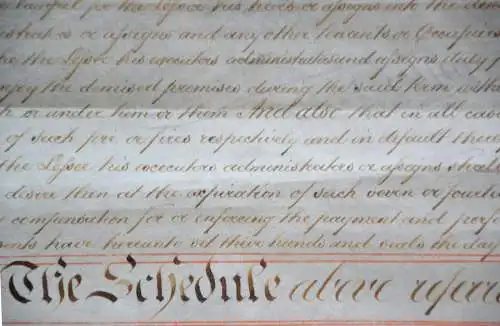 lawful for the Lessor his heirs or assigns into the dem
istrators or assigns and any other tenants or Occupiers
the Lessor his executors administrators and assigns duly p
enjoy the demised premises during the said term witho
or under him or them And also that in all cas
of such fire or fires respectively and in default there
the Lessee his executors administrators or assigns shal
desire then at the expiration of such seven or fourte
compensation for or enforcing the payment and perf
have hereunto set their hands and seals the day
The Schedule above referr